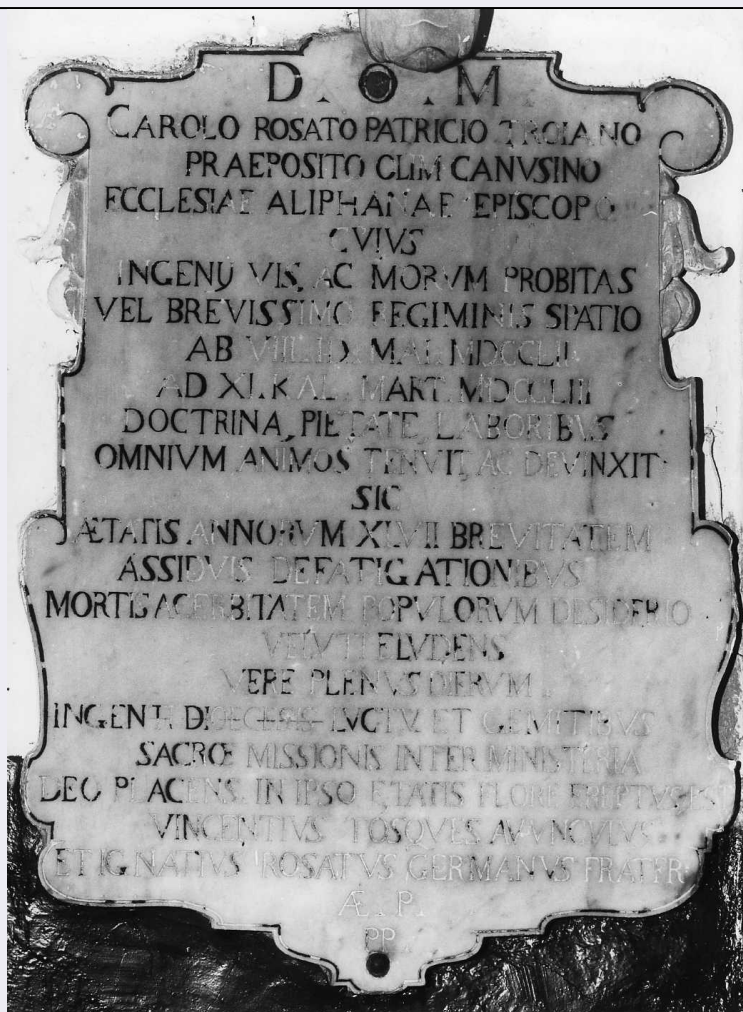 D . O . M .
CAROLO ROSATO PATRICIO TROIANO
PRAEPOSITO OLIM CANVSINO
ECCLESIAE ALIPHANAE EPISCOPO
CVIVS
INGENIJ VIS, AC MORVM PROBITAS
VEL BREVISSIMO REGIMINIS SPATIO
AB VIII. ID. MAI. MDCCLII
AD XI. KAL. MART. MDCCLIII
DOCTRINA, PIETATE, LABORIBVS
OMNIVM ANIMOS TENVIT, AC DEVINXIT
SIC
ÆTATIS ANNORVM XLVII BREVITATEM
ASSIDVIS DEFATIGATIONIBVS
MORTIS ACERBITATEM POPVLORVM DESIDERIO
VELVTI ELVDENS
VERE PLENVS DIERVM
INGENTI DIOECESIS LVCTV ET GEMITIBVS
SACRŒ MISSIONIS INTER MINISTERIA
DEO PLACENS, IN IPSO ETATIS FLORE EREPTVS EST
VINCENTIVS TOSQVES AVVNCVLVS
ET IGNATIVS ROSATVS GERMANVS FRATER
Æ. P.
PP.